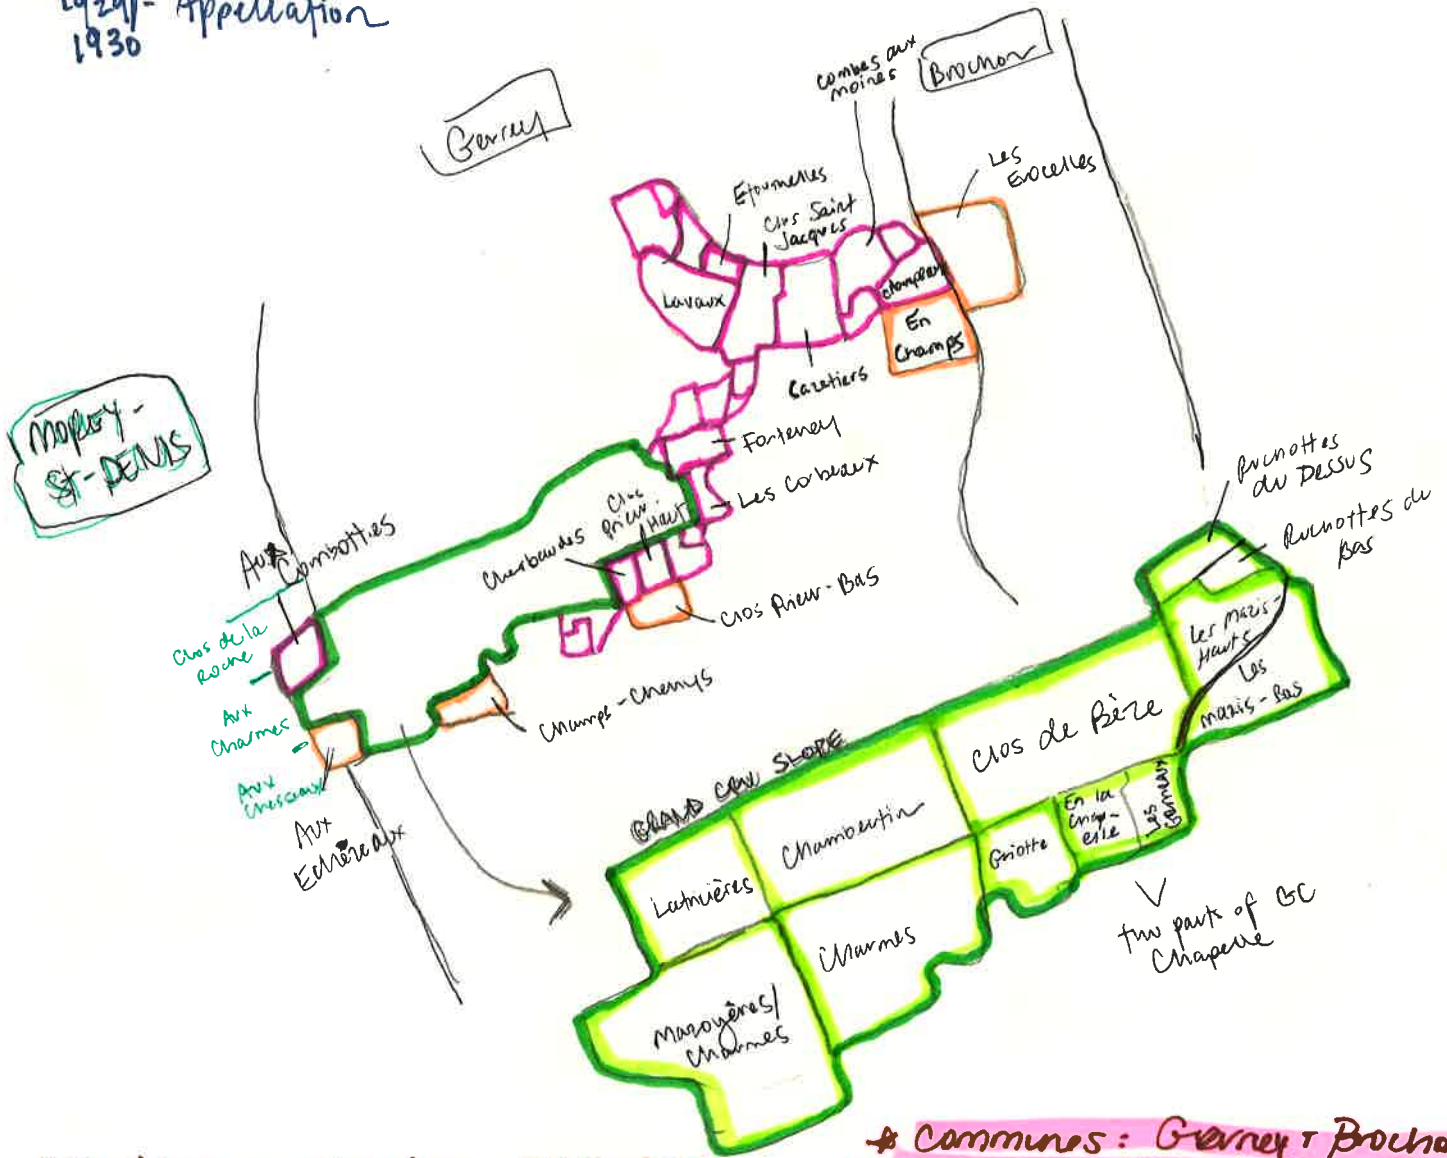 1929/- Appellation
1930
Gevrey
combes aux
moines
Brochon
Les
Evocelles
Etournelles
Clos Saint
Jacques
Lavaux
Champeaux
En
Champs
Cazetiers
MOREY-
St-DENIS
Fonteney
Les Corbeaux
Clos
Prieur-
Haut
Cherbaudes
Clos Prieur-Bas
Aux
Combottes
Clos de la
Roche
Aux
Charmes
Aux
Cheseaux
Aux
Echézeaux
Champs-Chenys
Ruchottes
du Dessus
Ruchottes du
Bas
Les Mazis-
Hauts
Les
Mazis-Bas
GRAND CRU SLOPE
Clos de Bèze
Chambertin
Latricières
Griotte
En la
Chap-
elle
Les
Gemeaux
Charmes
Mazoyères/
Charmes
two parts of GC
Chapelle
* Communes: Gevrey + Brocho